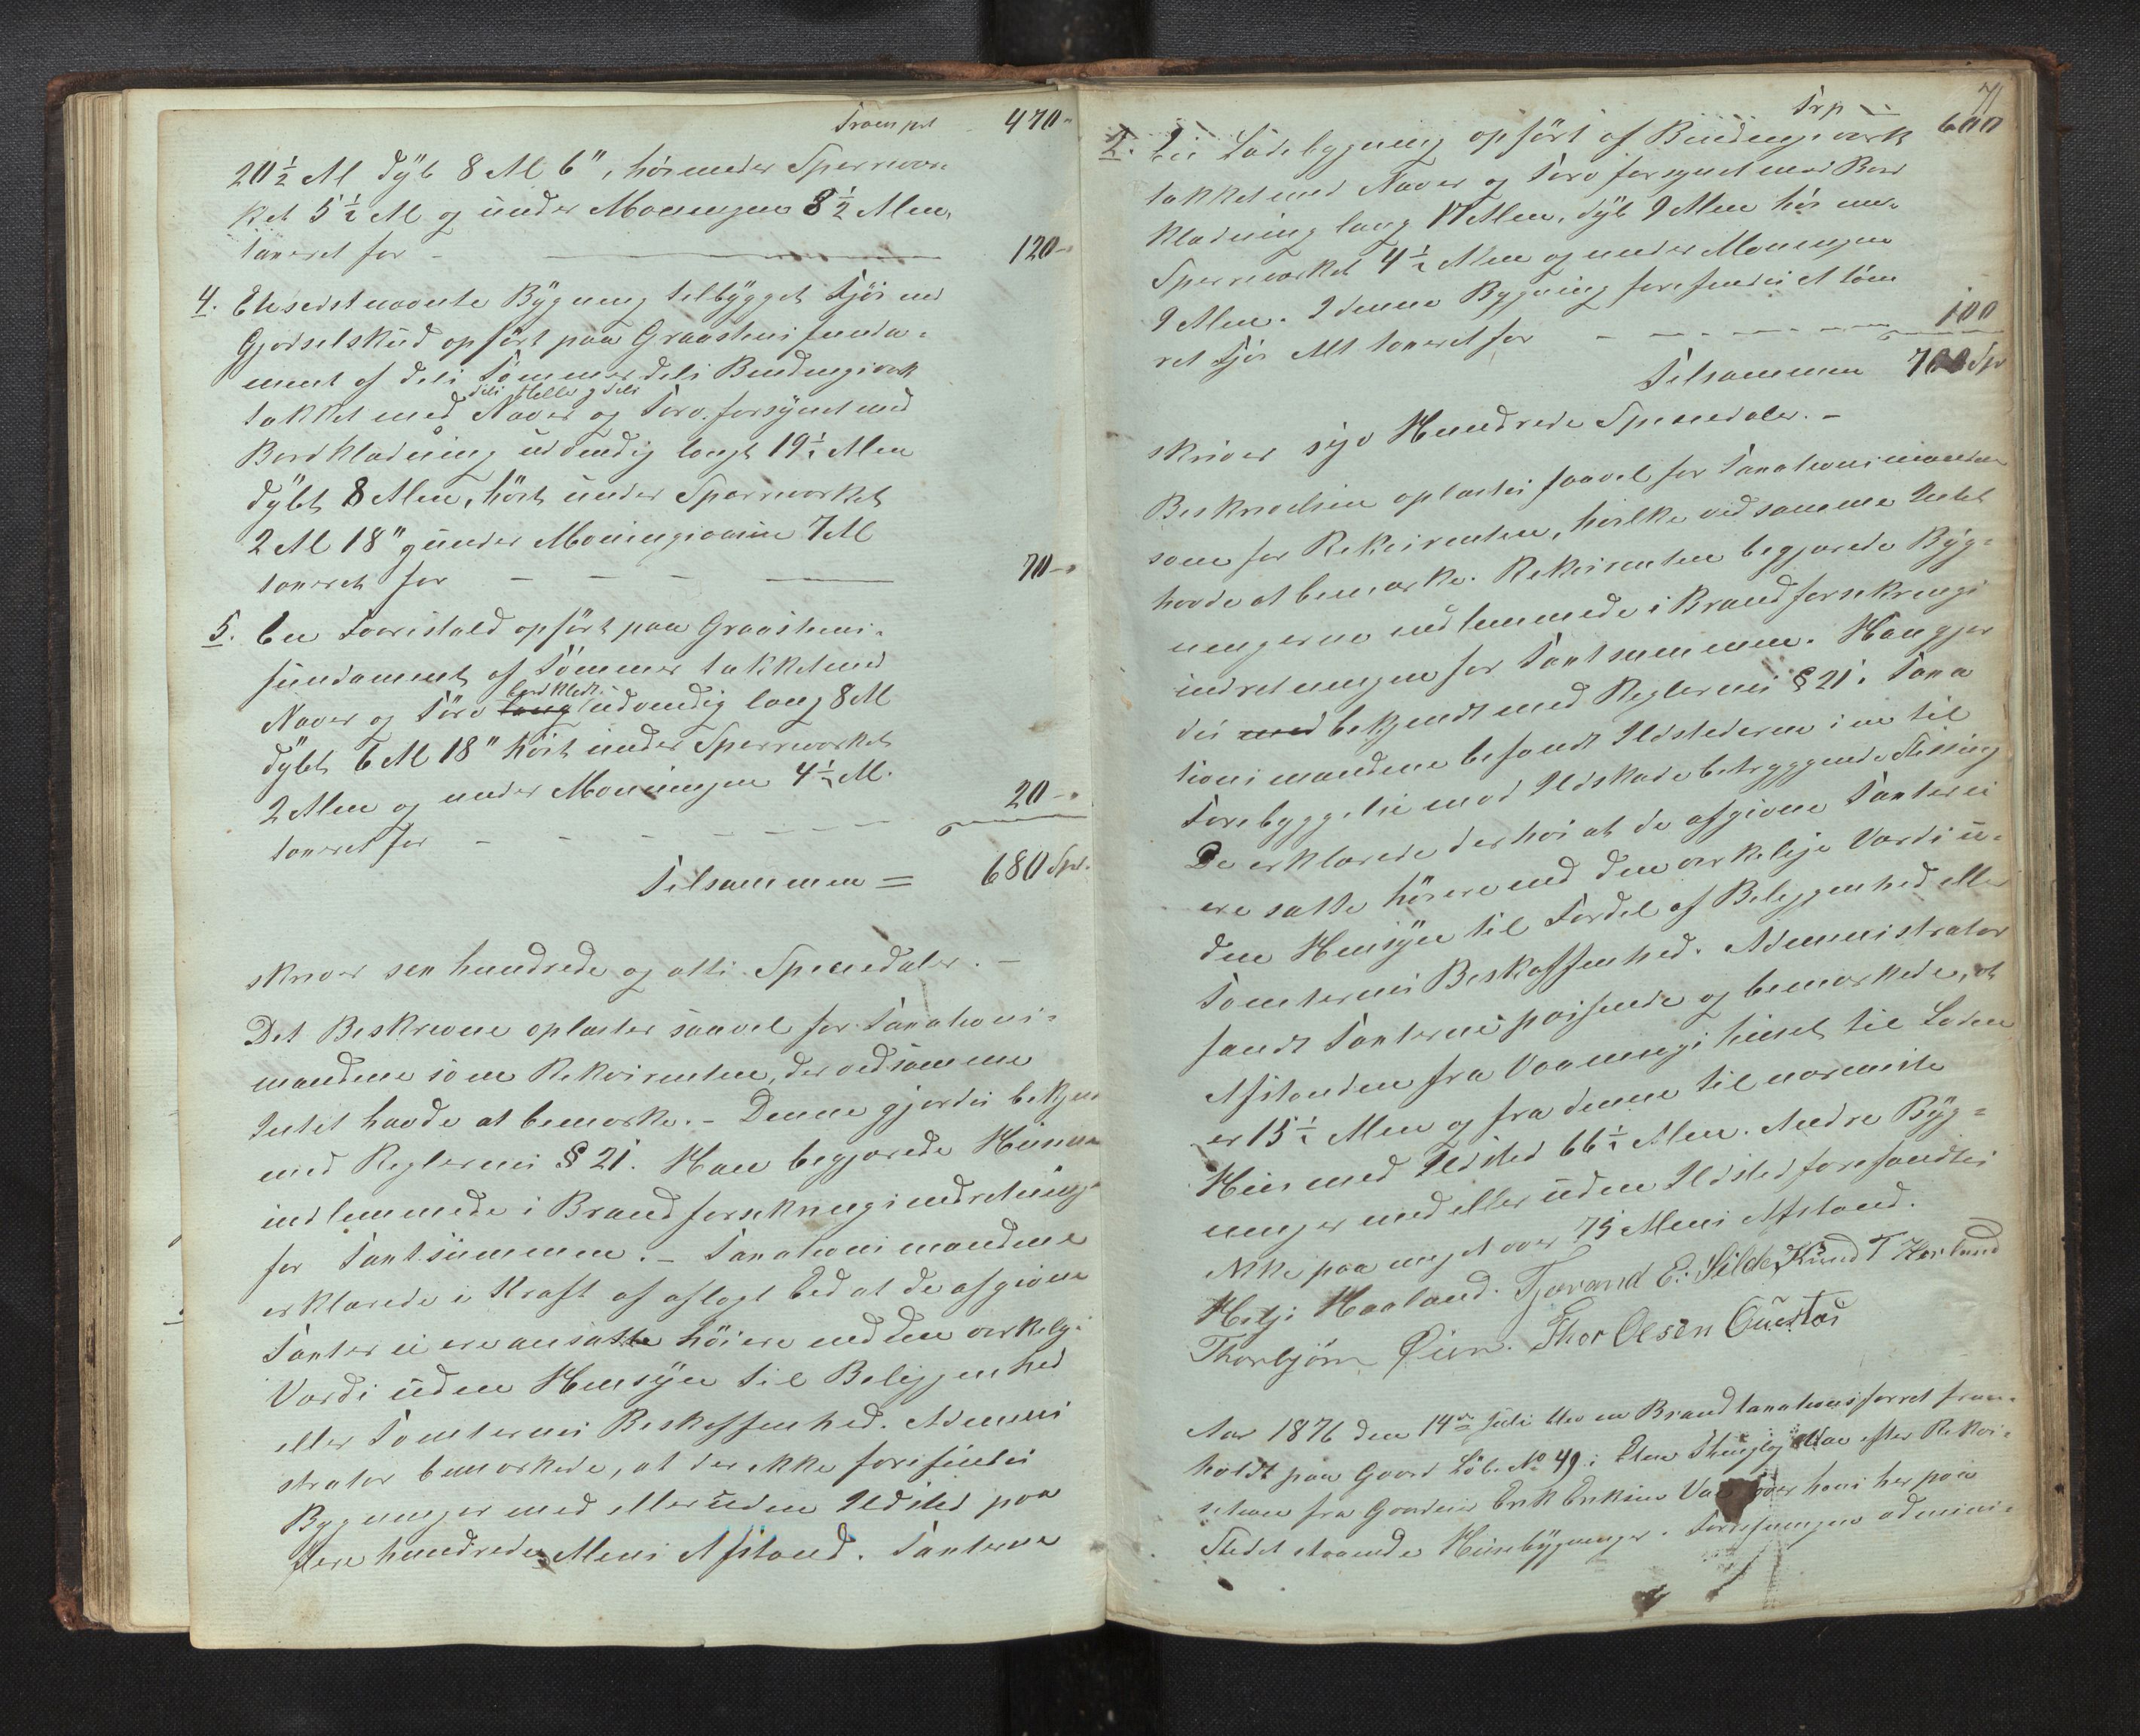 Transport 470
20 1/2 Al dyb 8 Al 6", höi under Sperrevær-
ket 5 1/2 Al og under Mønningen 8 1/2 Alen,
taxeret for 120
4. Et sidstnævnte Bygning tilbygget Fjös med
Gjødselskud opført paa Graasteinsfunda-
ment af dels Tømmer dels Bindingsværk
dels Heller og dels
takket med Næver og Torv, forsynet med
Bordklædning udvendig langt 19 1/2 Alen
dybt 8 Alen, höit under Sperreværket
2 Al 18" og under Mønningsaasen 7 Al
taxeret for 70
5. En Faarestald opført paa Graasteins-
fundament af Tømmer takket med
bordklædt
Næver og Törv lang udvendig lang 8 Al
dybt 6 Al 18" höit under Sperreværket
2 Alen og under Mønningen 4 1/2 Al.
taxeret for 20
Tilsammen = 680 Spd.
skriver sex hundrede og otti Speciedaler. –
Det Beskrevne oplæstes saavel for Taxations-
mændene som Rekvirenten, der ved samme
Intet havde at bemærke. – Denne gjordes bekjendt
med Reglernes § 21. Han begjærede Husene
indlemmede i Brandforsikringsindretningen
for Taxtsummen. – Taxationsmændene
erklærede i Kraft af aflagt Ed at de afgivne
Taxter ei ere ansatte höiere end den virkelige
Værdi uden Hensyn til Beliggenhed
eller Tomternes Beskaffenhed. Admini
strator bemærkede, at der ikke forefindes
Bygninger med eller uden Ildsted paa
flere hundrede Alens Afstand. Taxterne
71
Trp 600
2. En Ladebygning opført af Bindingsværk
takket med Næver og Torv forsynet med Bord
klædning lang 17 Alen, dyb 9 Alen höi under
Sperreværket 4 1/2 Alen og under Mønningen
9 Alen. I denne Bygning forefindes et töm
ret Fjös Alt taxeret for 100
Tilsammen 700 Spd
skriver syv Hundrede Speciedaler. –
Beskrivelsen oplæstes saavel for Taxationsmændene
som for Rekvirenten, hvilke ved samme Intet
havde at bemærke. Rekvirenten begjærede Byg-
ningerne indlemmede i Brandforsikrings
indretningen for Taxtsummen. Han gjor
des med bekjendt med Reglernes § 21. Taxa
tionsmændene befandt Ildstederne i en til
Forebyggelse mod Ildskade betryggende Stilling
De erklærede derhos at de afgivne Taxter ei
ere satte höiere end den virkelige Værdi u-
den Hensyn til Fordel af Beliggenhed eller
Tomternes Beskaffenhed. Administrator
fandt Taxterne passende og bemærkede, at
Afstanden fra Vaaningshuset til Laden
er 15 1/2 Alen og fra denne til nærmeste
Huus med Ildsted 66 1/2 Alen. Andre Byg-
ninger med eller uden Ildsted forefandtes
ikke paa noget over 75 Alens Afstand.
Helje Haaland. Tjærand E. Silde Knud T Harland
Thorbjörn Øien. Thor Olsen Gustad
Aar 1876 den 14de Juli blev en Brandtaxationsforret frem-
holdt paa Gaard Löb. No 49 i efter Rekvi-
sition fra Gaardm Erik Eriksen over hans her paa
Stedet staaende Huusbygninger. Forretningen admini-